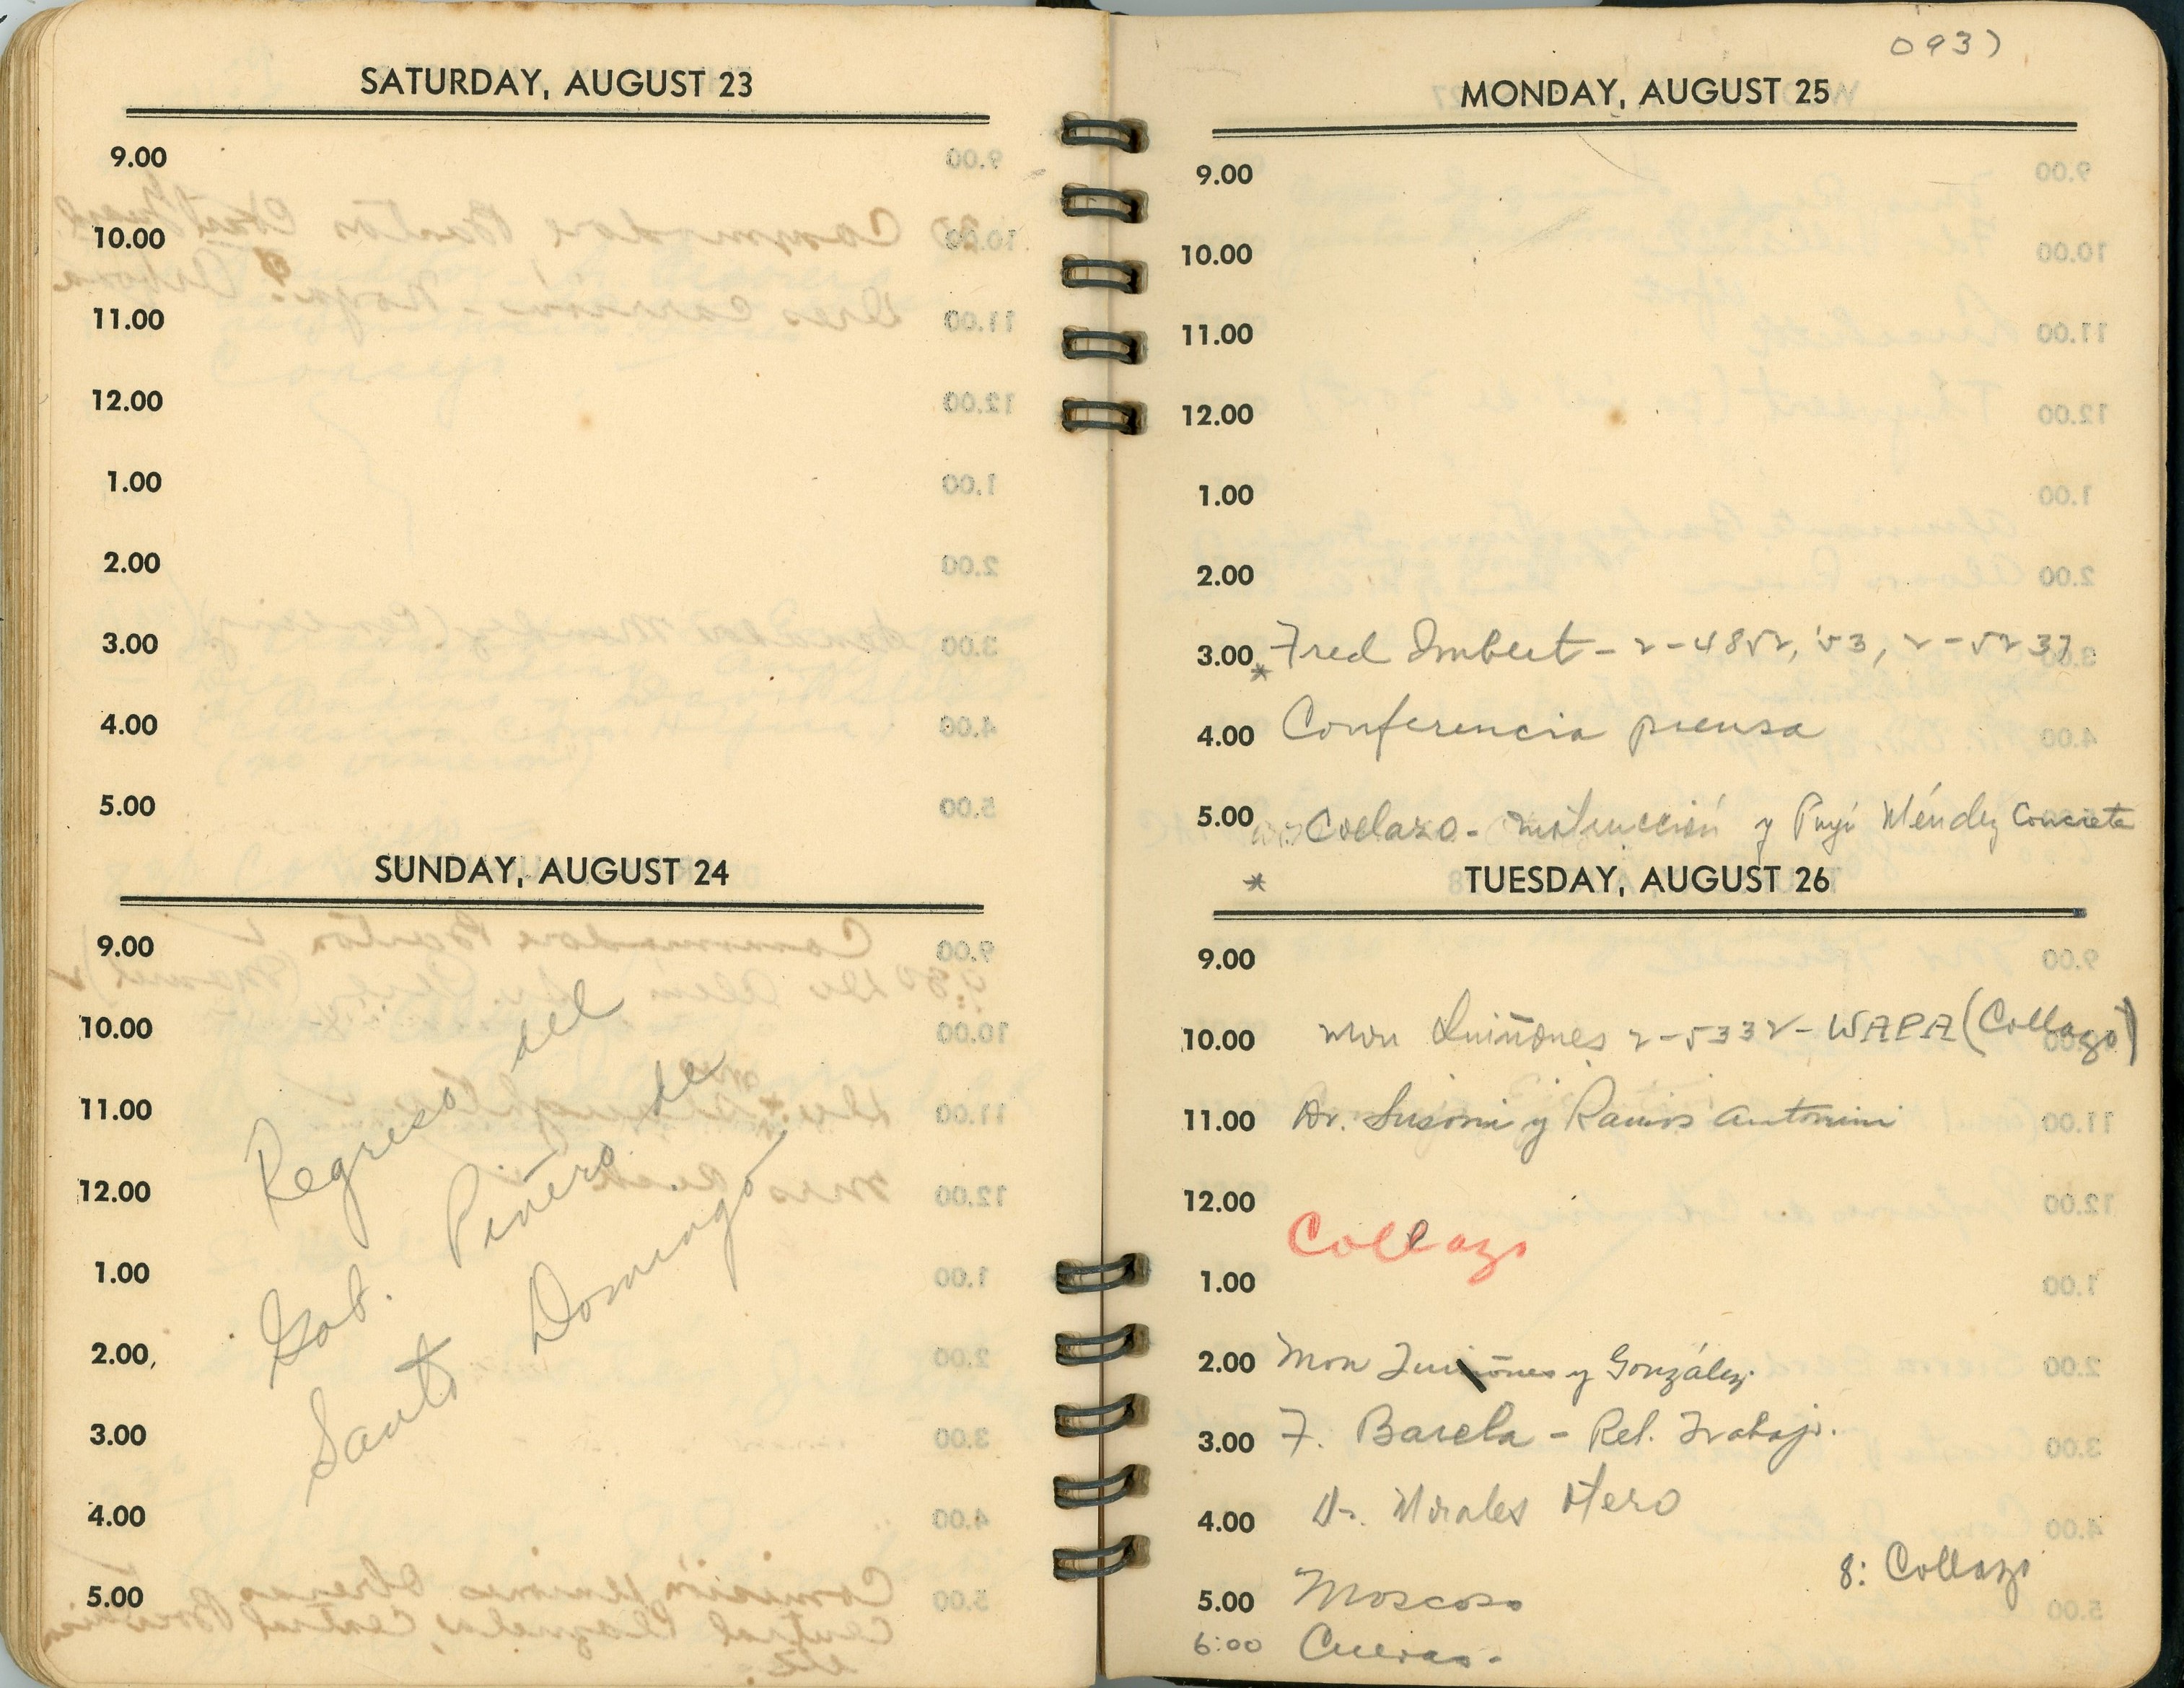 SATURDAY, AUGUST 23
9.00
10.00
11.00
12.00
1.00
2.00
3.00
4.00
5.00
SUNDAY, AUGUST 24
9.00
10.00
11.00
12.00
1.00
2.00
3.00
4.00
5.00
Regreso del
Gob. Piñero de
Santo Domingo
093)
MONDAY, AUGUST 25
9.00
10.00
11.00
12.00
1.00
2.00
3.00 * Fred Imbert - 2-4852, 53, 2-5237
4.00 Conferencia prensa
5.00 Collazo - Instrucción y Puyí Méndez Concreta
* TUESDAY, AUGUST 26
9.00
10.00 Mon Quiñones 2-5332 - WAPA (Collazo)
11.00 Dr. Susoni y Ramos Antonini
12.00
Collazo
1.00
2.00 Mon Quiñones y González
3.00 F. Barela - Rel. Trabajo.
4.00 Dr. Morales Otero
8: Collazo
5.00 Moscoso
6:00 Cuevas.